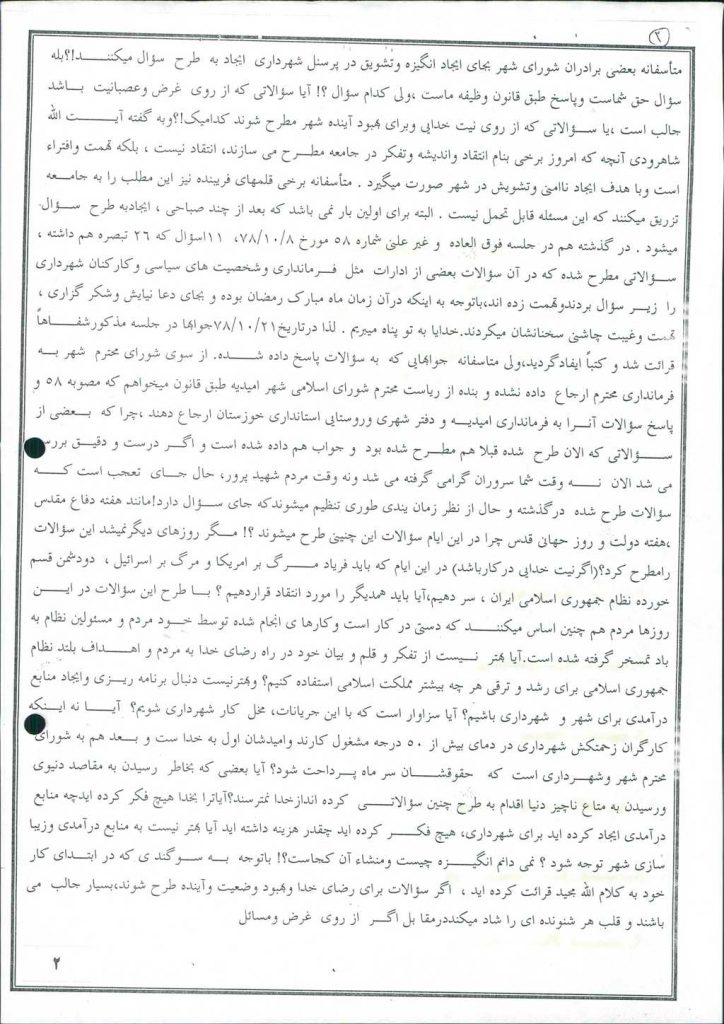 (۳)
متأسفانه بعضی برادران شورای شهر بجای ایجاد انگیزه وتشویق در پرسنل شهرداری ایجاد به طرح سؤال میکننـــد!؟بله
سؤال حق شماست وپاسخ طبق قانون وظیفه ماست ،ولی کدام سؤال ؟! آیا سؤالاتی که از روی غرض وعصبانیت باشد
جالب است ،یا سـؤالاتی که از روی نیت خدایی وبرای بهبود آینده شهر مطرح شوند کدامیک!؟وبه گفته آیــت الله
شاهرودی آنچه که امروز برخی بنام انتقاد واندیشه وتفکر در جامعه مطـرح می سازند، انتقاد نیست ، بلکه تهمت وافتراء
است وبا هدف ایجاد ناامنی وتشویش در شهر صورت میگیرد . متأسفانه برخی قلمهای فریبنده نیز این مطلب را به جامعه
تزریق میکنند که این مسئله قابل تحمل نیست . البته برای اولین بار نمی باشد که بعد از چند صباحی ، ایجادبه طرح سـؤال
میشود . در گذشته هم در جلسه فوق العاده و غیر علنی شماره ۵۸ مورخ ۷۸/۱۰/۸، ۱۱اسؤال که ۲۶ تبصره هم داشته ،
سـؤالاتی مطرح شده که در آن سؤالات بعضی از ادارات مثل فـرمانداری وشخصیت های سیاسی وکارکنان شهرداری
را زیـر سؤال بردندوتهمت زده اند،باتوجه به اینکه درآن زمان ماه مبارک رمضان بوده و بجای دعا نیایش وشکر گزاری ،
تهمت وغیبت چاشنی سخنانشان میکردند.خدایا به تو پناه میبریم . لذا درتاریخ۷۸/۱۰/۲۱جوابها در جلسه مذکورشفـاهاً
قرائت شد و کتباً ایفادگردید،ولی متاسفانه جوابهایی که به سؤالات پاسخ داده شـــده. از سوی شورای محترم شهر به
فرمانداری محترم ارجاع داده نشده و بنده از ریاست محترم شورای اسلامی شهر امیدیه طبق قانون میخواهم که مصوبه ۵۸ و
پاسخ سؤالات آنـرا به فرمانداری امیدیـه و دفتر شهری وروستایی استانداری خوزستان ارجاع دهند ،چرا که بعضی از
سـؤالاتی که الان طرح شده قبلا هم مطـرح شده بود و جواب هم داده شده است و اگـر درست و دقیـق بررسی
می شد الان نـــه وقت شما سروران گرامی گرفته می شد ونه وقت مردم شهید پرور، حال جـای تعجب است کـه
سؤالات طرح شده درگذشته و حال از نظر زمان بندی طوری تنظیم میشوندکه جای سـؤال دارد!مانند هفته دفاع مقدس
،هفته دولت و روز جهانی قدس چرا در این ایام سؤالات این چنینی طرح میشوند ؟! مـگر روزهای دیگرنمیشد این سؤالات
رامطرح کرد؟(اگرنیت خدایی درکارباشد) در این ایام که باید فریاد مـرگ بر امریکا و مرگ بر اسرائیل ، دودشمن قسم
خورده نظام جمهوری اسلامی ایران ، سر دهیم،آیا باید همدیگر را مورد انتقاد قراردهیم ؟ بـا طرح این سؤالات در ایـن
روزها مردم هم چنین اساس میکننـــد که دستی در کار است وکارها ی انجام شده توسط خـود مردم و مسئولین نظام به
باد تمسخر گرفته شده است.آیا بهتر نیـست از تفکر و قلم و بیان خود در راه رضای خدا به مردم و اهـداف بلند نظام
جمهوری اسلامی برای رشد و ترقی هر چه بیشتر مملکت اسلامی استفاده کنیم؟ وبهترنیست دنبال برنامه ریزی وایجاد منابع
درآمدی برای شهر و شهرداری باشیم؟ آیا سزاوار است که با این جریانات، مخل کار شهرداری شویم؟ آیـا نه اینکه
کارگران زحمتکش شهرداری در دمای بیش از ۵۰ درجه مشغول کارند وامیدشان اول به خدا ست و بـعد هم به شورای
محترم شهر وشهـرداری است که حقوقشـان سر ماه پـرداخت شود؟ آیا بعضی که بخاطر رسیدن به مقاصد دنیوی
ورسیدن به متاع ناچیز دنیا اقدام به طرح چنین سؤالاتـی کرده اندازخدا نمترسند؟آیاترا بخدا هیچ فکر کرده ایدچه منابع
درآمدی ایجاد کرده اید برای شهرداری، هیچ فکـر کرده اید چقدر هزینه داشته اید آیا بهتر نیست به منابع درآمدی وزیبا
سازی شهر توجه شود ؟ نمی دانم انگیـزه چیست ومنشاء آن کجاست؟! باتوجه بـه سـوگند ی که در ابتـدای کار
خود به کلام الله مجید قرائت کرده اید ، اگر سؤالات برای رضای خدا وبهبود وضعیت وآینده طرح شوند،بسیار جالب می
باشند و قلب هر شنونده ای را شاد میکنددرمقا بل اگـر از روی غرض ومسائل
۲